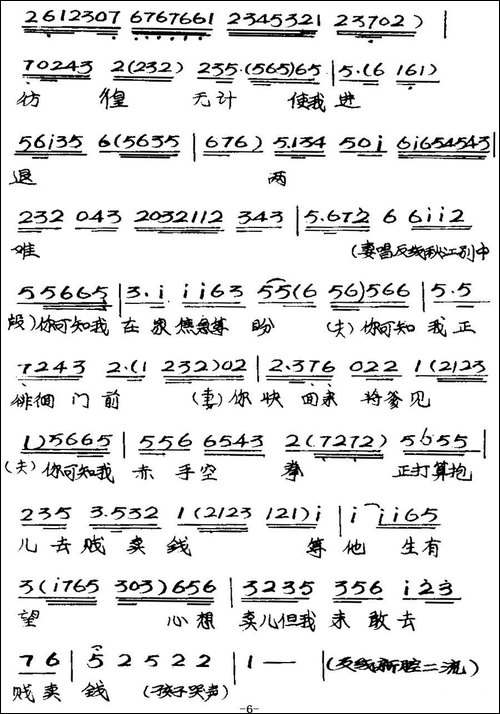 2612307 6767661 2345321 23702)
70243 2(232) 235.(565)65 5.(6 161)
彷徨 无计 使我进
56i35 6(5635 676) 5.134 50i 6i654543
退 两
232 043 2032112 343 5.672 6 6ii2
难 (妻唱反线秋江别中
55665 3.i ii63 55(6 56)566 5.5
段)你可知我在家焦急等盼 (夫)你可知我正
7243 2.(1 232)02 2.376 022 1(2123
徘徊门前 (妻)你快回来将爹见
1)5665 556 6543 2(7272) 5655
(夫)你可知我赤手空拳 正打算抱
235 3.532 1(2123 121)i i ii65
儿去贱卖钱 等他生有
3(i765 303)656 3235 356 i23
望 心想卖儿但我未敢去
76 5 2522 1—
贱卖钱 (孩子哭声) (反线新腔二流)
-6-